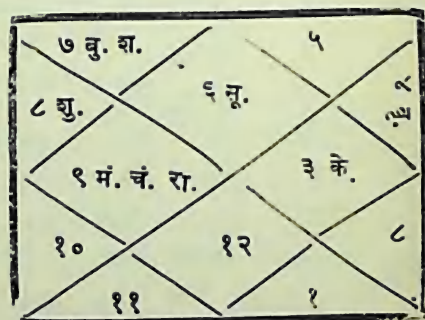 ७ बु. श.
५
८ शु.
६ सू.
४ बृ.
९ मं. चं. रा.
३ के.
१०
१२
८
११
१